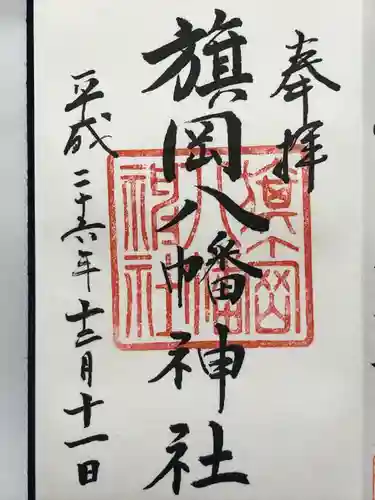 奉拝
旗岡八幡神社
平成二十六年十二月十一日
旗岡
八幡
神社